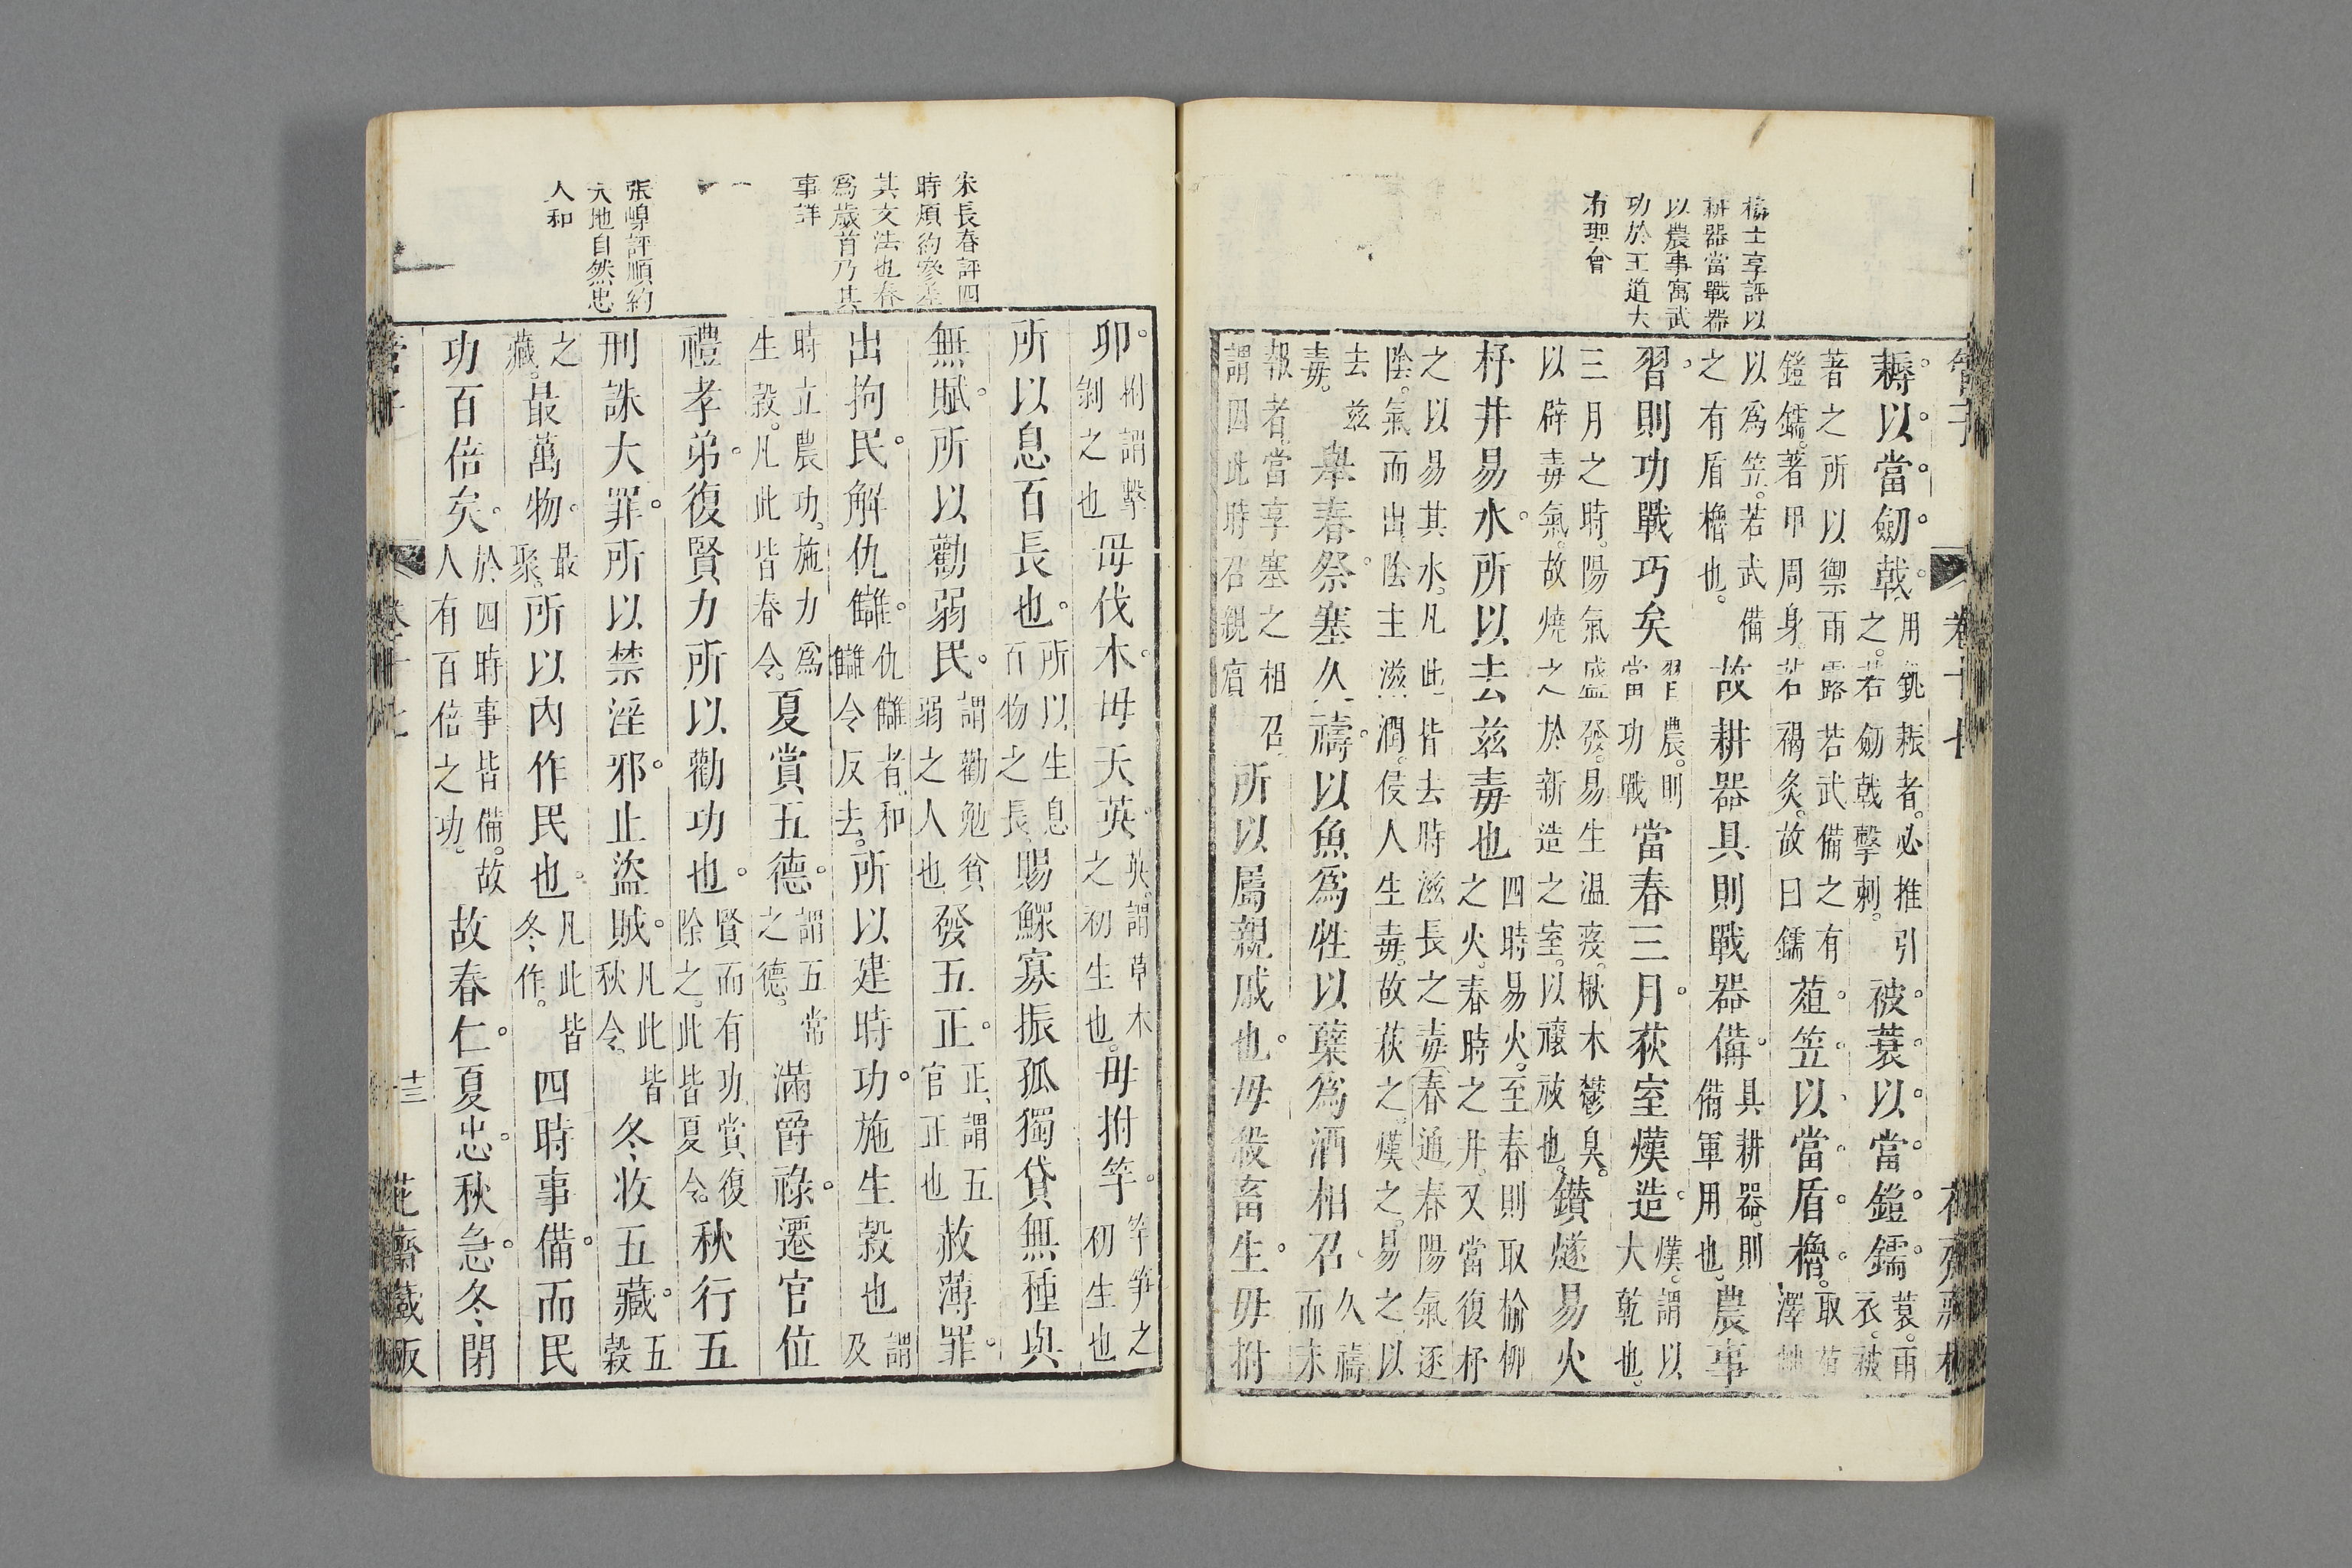 管子
卷十七
楊士享評以
耕器當戰器
以農事寓武
功於王道大
有理會
耨以當劒戟用銚耨者必推引之若劒戟擊刺被蓑以當鎧鑐蓑雨衣被
著之所以禦雨露若武備之有鎧鑐著甲周身若襦灸故曰鑐菹笠以當盾櫓取菹澤草
以爲笠若武備之有盾櫓也故耕器具則戰器備具耕器則備軍用也農事
習則功戰巧矣習農則當功戰當春三月萩室熯造熯謂以大乾也
三月之時陽氣盛發易生温疫楸木鬱臭以辟毒氣故燒之於新造之室以禳祓也鑚燧易火
杼井易水所以去兹毒也四時易火至春則取榆柳之火春時之井又當復杼
之以易其水凡此皆去時滋長之毒春通春陽氣逐陰氣而出陰主滋潤伎人生毒故萩之熯之易之以
去兹毒舉春祭塞久禱以魚爲牲以糱爲酒相召久禱而未
報者當享塞之相召謂四此時召親賓所以屬親戚也毋殺畜生毋拊
朱長春評四
時煩約叅差
其文法也春
爲歲首乃其
事詳
張嵲評順約
天地自然忠
人和
卵拊謂擊剝之也毋伐木毋夭英英謂草木之初生也毋拊竿竿笋之初生也
所以息百長也所以生息百物之長賜鰥寡振孤獨貸無種與
無賦所以勸弱民謂勸勉貧弱之人也發五正正謂五官正也赦薄罪
出拘民解仇讎仇讎者和讎令反去所以建時功施生榖也謂及
時立農功施力爲生榖凡此皆春令夏賞五德謂五常之德滿爵祿遷官位
禮孝弟復賢力所以勸功也賢而有功賞復除之此皆夏令秋行五
刑誅大罪所以禁淫邪止盜賊凡此皆秋令冬收五藏五榖
之藏最萬物最聚所以內作民也凡此皆冬作四時事備而民
功百倍矣於四時事皆備故人有百倍之功故春仁夏忠秋急冬閉
十三
花齋藏版